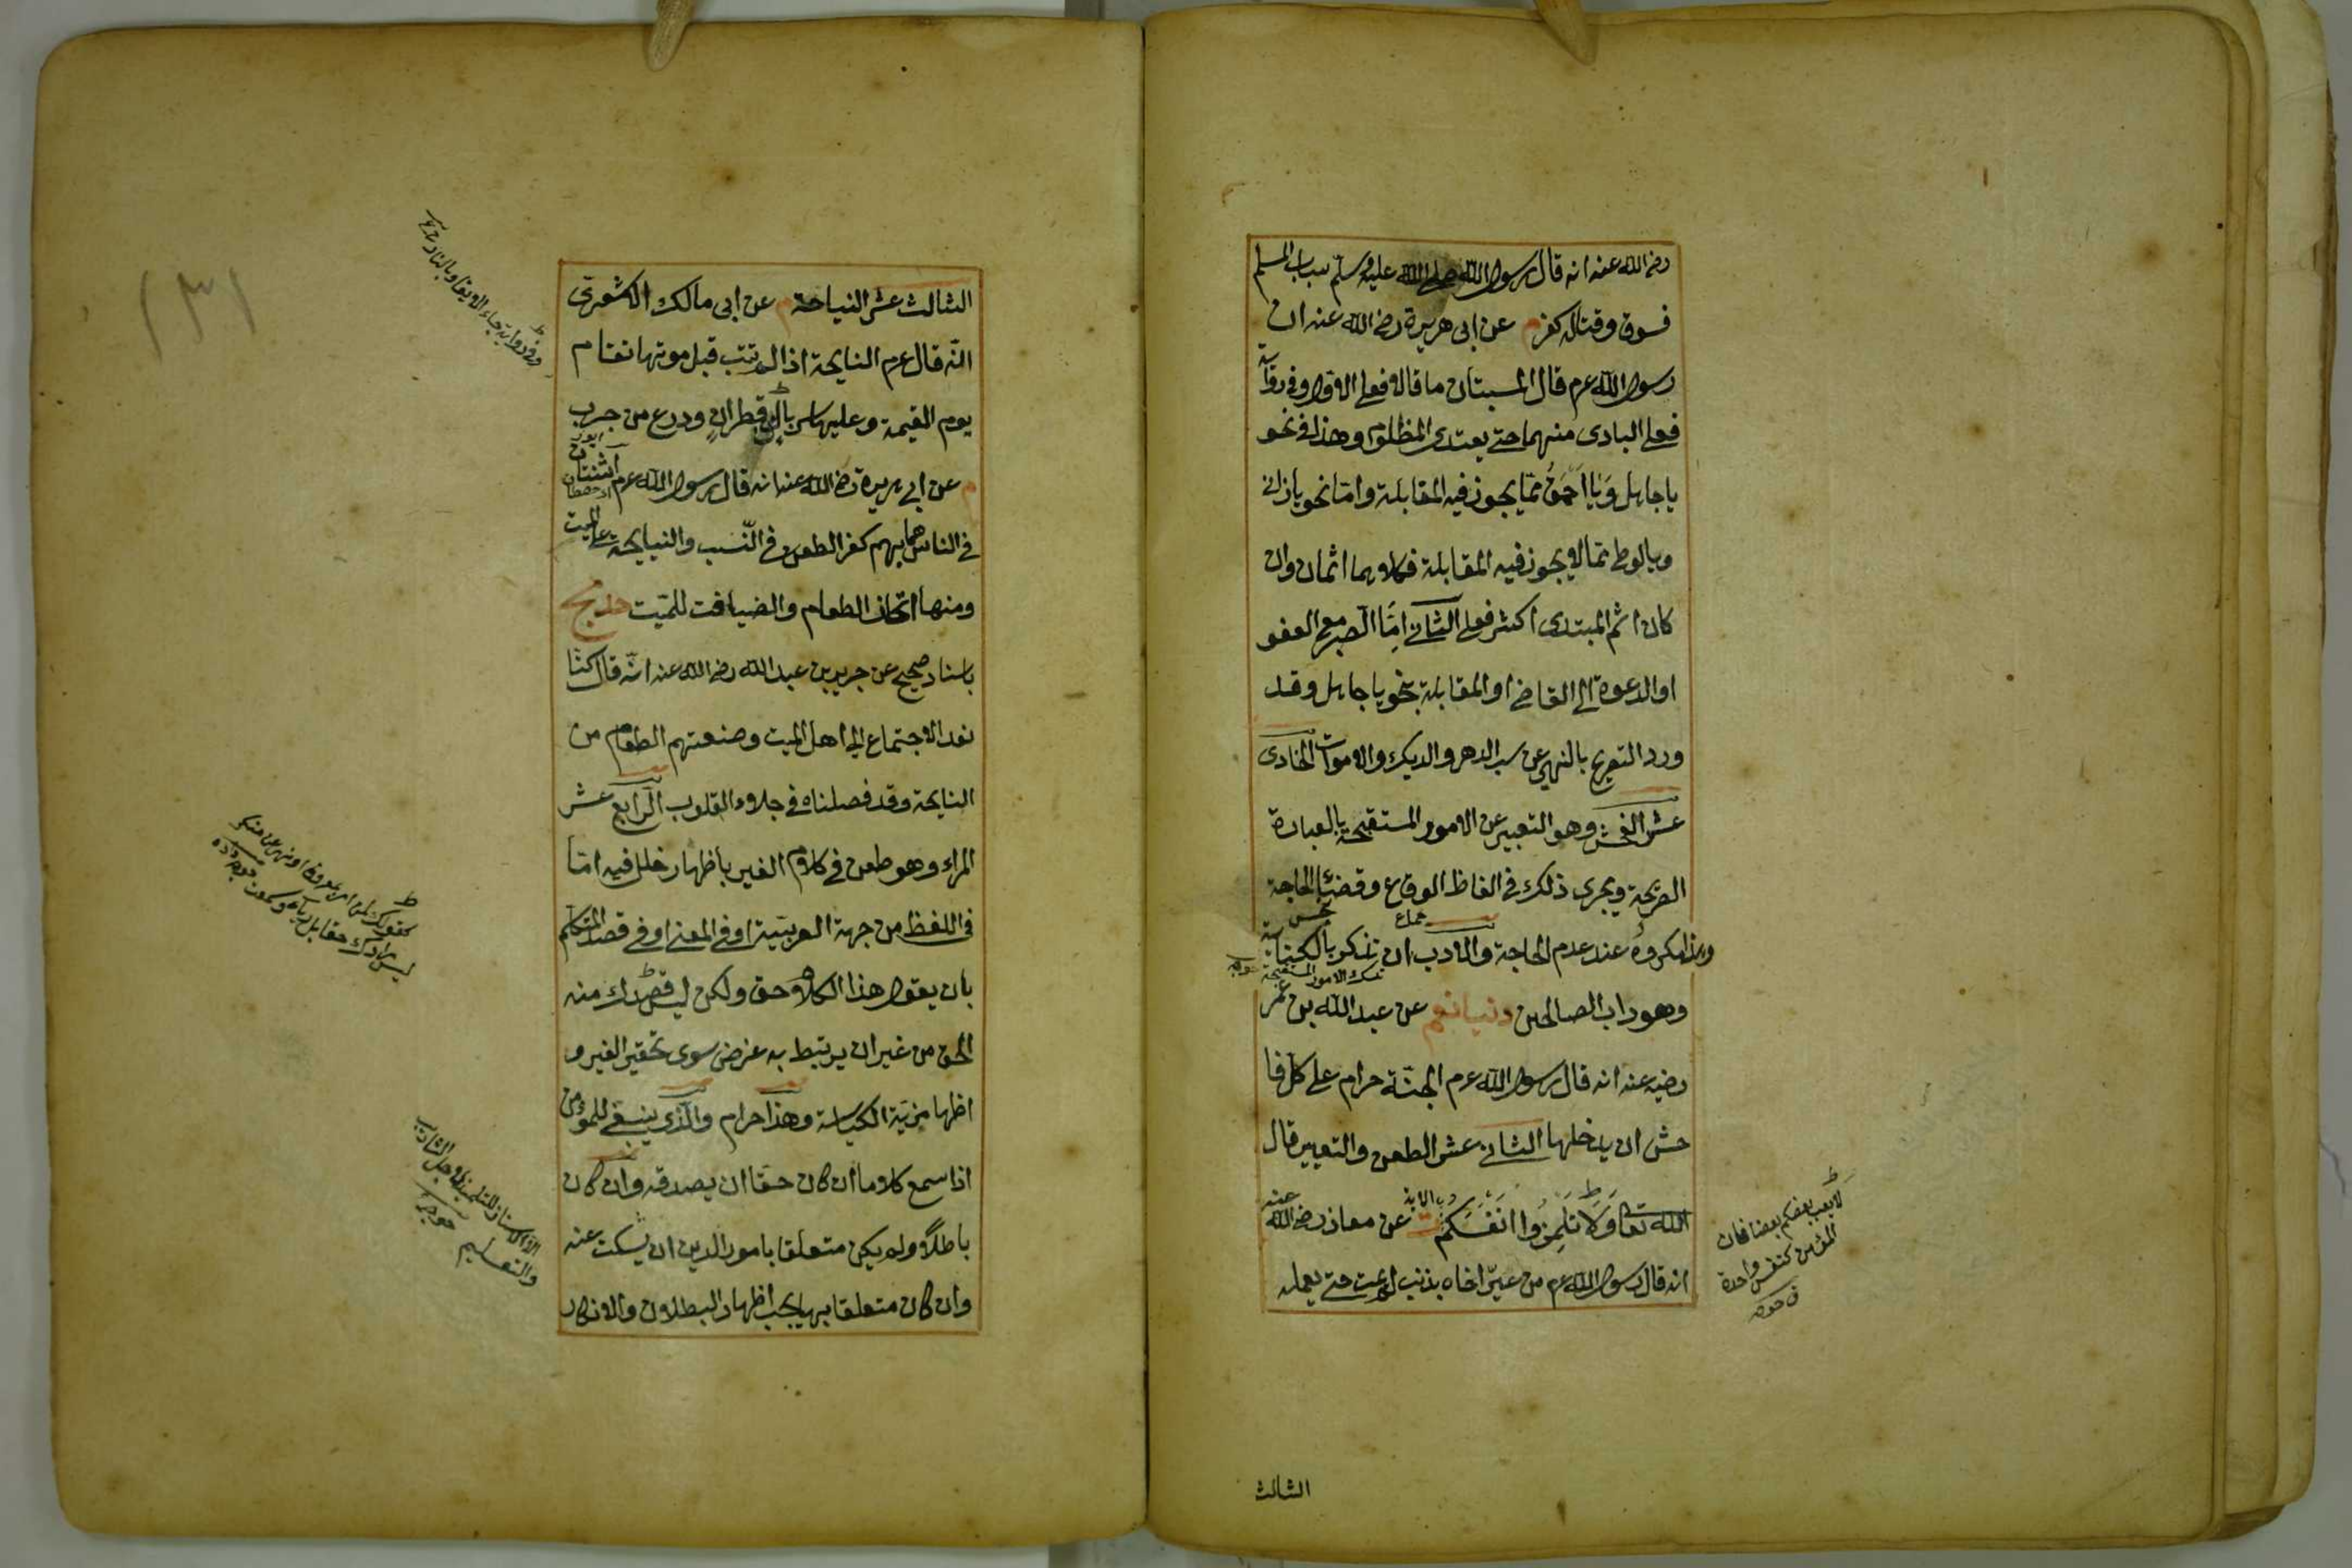 رضى الله عنه انه قال رسول الله صلى الله عليه وسلم سباب المسلم
فسوق وقتاله كفر م عن ابى هريرة رضى الله عنه ان
رسول الله عرم قال المستبان ما قالا فعلى الاول وفى رواية
فعلى البادى منهما حتى يعتدى المظلوم وهذا فى نحو
يا جاهل وَيَا اَحْمَقُ ممّا يجوز فيه المقابلة وامّا نحو يا زانى
ويا لوطى ممّا لا يجوز فيه المقابلة فكلاهما اثمان وان
كان اثم المبتدى اكثر فعلى الثانى امّا الصبر مع العفو
او الدعوة الى القاضى او المقابلة بنحو يا جاهل وقد
ورد التصريح بالنهى عن سب الدهر والديك والاموات الحادى
عشر الفحش وهو التعبير عن الامور المستقبحة بالعبارة
الصريحة ويجرى ذلك فى الفاظ الوقاع وقضاء الحاجة
جماع
وهذا مكروهٌ عند عدم الحاجة والادب ان تذكر بالكناية
تلك الامور المستقبحة
وهو داب الصالحين دنيا نعم عن عبد الله بن عمر
رضيه عنه انه قال رسول الله عرم الجنّة حرام على كلّ فا
حش ان يدخلها الثانى عشر الطعن والتعيير قال
الله تعالى وَلَا تَلْمِزُوا اَنْفُسَكُمْ الاية ت عن معاذ رضى الله عنه
انه قال رسول الله عرم من عيّر اخاه بذنب لم يمت حتى يعمله
لا يعب بعضكم بعضا فان
المؤمنين كنفس واحدة
الثالث
١٣١
الثالث عشر النياحة م عن ابى مالك الاشعرى
انّه قال عرم النايحة اذا لم تتب قبل موتها تقام
يوم القيمة وعليها سربال من قطران ودرع من جرب
م عن ابى هريرة رضى الله عنه انه قال رسول الله عرم اثنتان
فى الناس هما بهم كفر الطعن فى النّسب والنياحة على الميت
ومنها اتخاذ الطعام والضيافت للميّت حد مج
باسناد صحيح عن جرير بن عبد الله رضى الله عنه انّه قال كنّا
نعد الاجتماع الى اهل الميت وصنعتهم الطعام من
النايحة وقد فصلناه فى جلاء القلوب الرابع عشر
المراء وهو طعن فى كلام الغير باظهار خلل فيه امّا
فى اللفظ من جهة العربيّة او فى المعنى او فى قصد المتكلم
بان يقول هذا الكلام حق ولكن ليس قصدك منه
الحق من غير ان يرتبط به غرض سوى تحقير الغير و
اظهار مزيّة الكياسة وهذا حرام والّذى ينبغى للمؤمن
اذا سمع كلاما ان كان حقّا ان يصدقه وان كان
باطلًا ولم يكن متعلقا بامور الدين ان يسكت عنه
وان كان متعلقا بها يجب اظهار البطلان والانكار
والتعليم